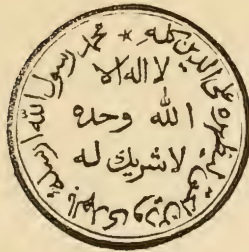 لا اله الا
الله وحده
لا شريك له
محمد رسول الله ارسله بالهدى ودين الحق ليظهره على الدين كله